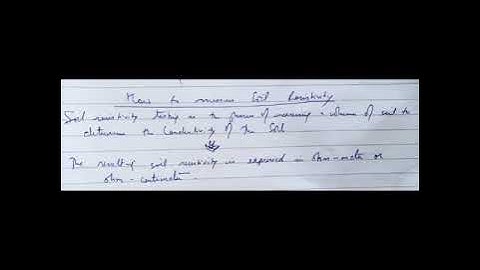 How to measure Soil Resistivity
Soil resistivity testing is the process of measuring a volume of soil to
determine the Conductivity of the Soil
⇓
The result of soil resistivity is expressed in ohm-meter or
ohm-centimeter.